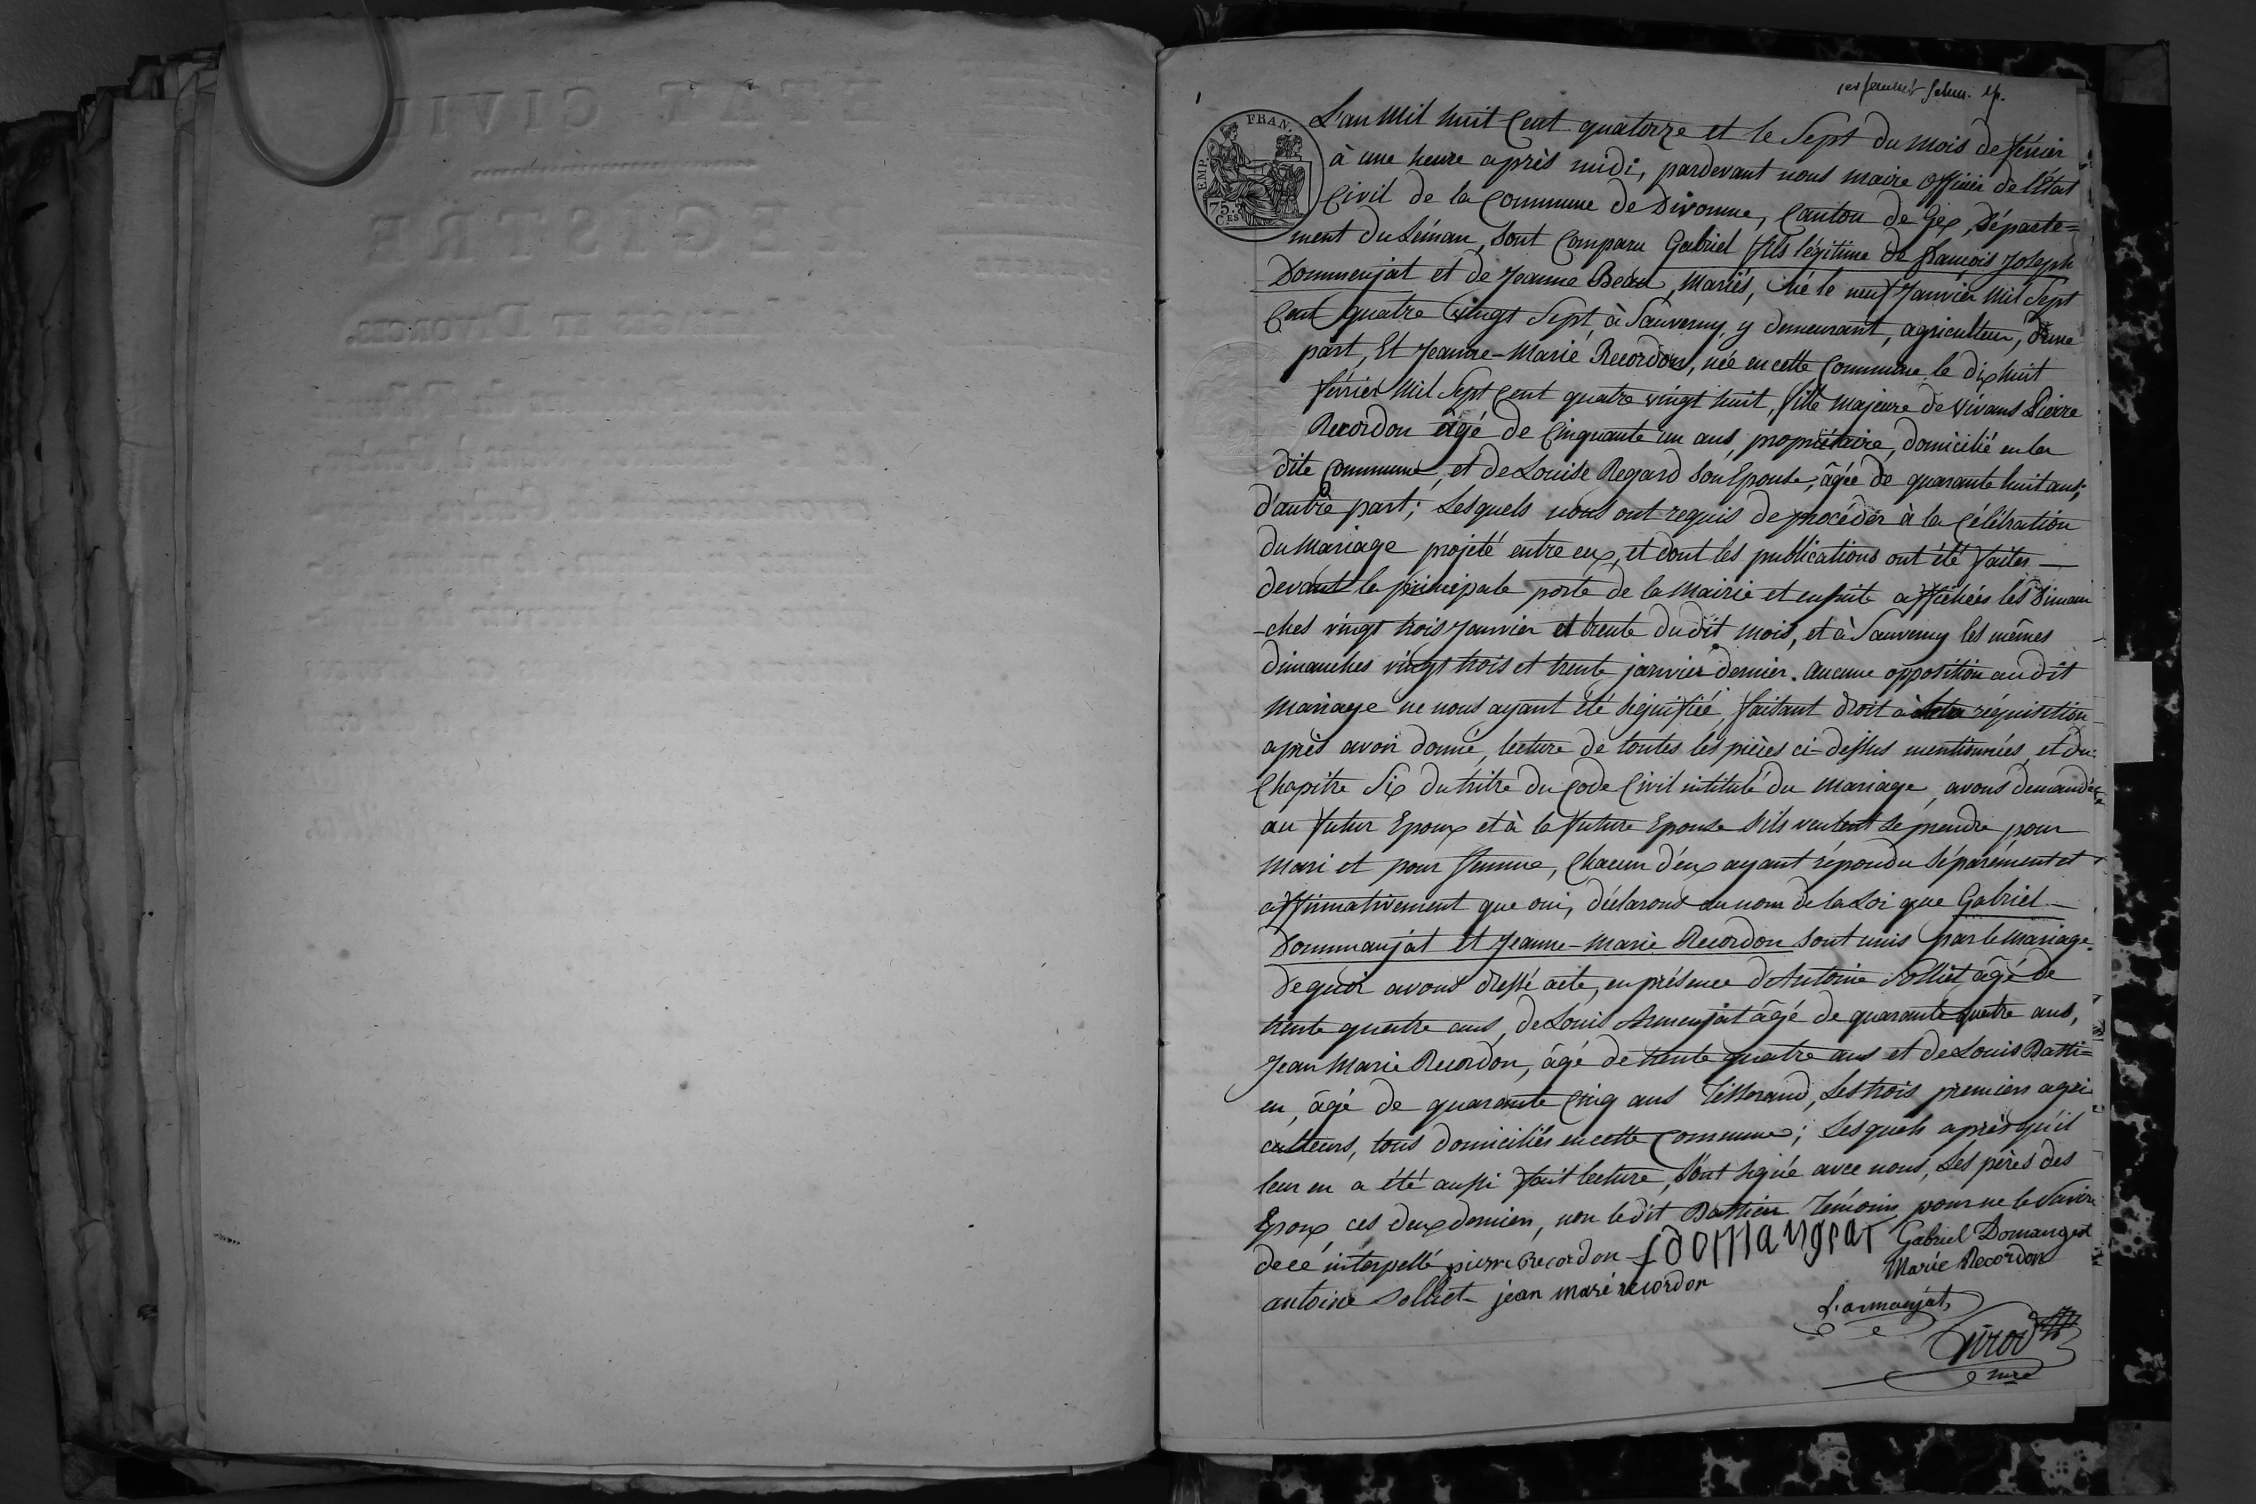 1er feuillet
FRAN.
EMP.
75.
CES
L'an Mil huit Cent quatorze et le Sept du mois de février
à une heure après midi, pardevant nous maire officier de l'état
Civil de la Commune de Divonne, Canton de Gex, Départe=
ment du Léman, sont Comparu Gabriel fils légitime de françois Joseph
Dommenjat et de Jeanne Beau, mariés, né le neuf Janvier Mil Sept
Cent quatre vingt Sept à Sauverny, y demeurant, agriculteur, d'une
part, Et Jeanne-Marie Recordon, née en cette Commune le dix huit
février Mil Sept Cent quatre vingt huit, fille majeure de vivans Pierre
Recordon âgé de Cinquante un ans, propriétaire, domicilié en la
dite Commune, et de Louise Regard son Epouse, âgée de quarante huit ans;
d'autre part; Lesquels nous ont requis de procéder à la Célébration
du Mariage projeté entre eux, et dont les publications ont été faites —
devant la principale porte de la Mairie et ensuite affichées les Diman
-ches vingt trois Janvier et trente dudit mois, et à Sauverny les mêmes
dimanches vingt trois et trente janvier dernier. Aucune opposition audit
Mariage ne nous ayant été signifiée, faisant droit à réquisition
après avoir donné lecture de toutes les pièces ci-dessus mentionnées, et du
Chapitre Six du titre du Code Civil intitulé du Mariage, avons demandé
au futur Epoux et à la future Epouse s'ils veulent se prendre pour
Mari et pour femme, Chacun d'eux ayant répondu séparément et
affirmativement que oui, déclarons au nom de la Loi que Gabriel —
Dommanjat et Jeanne-Marie Recordon sont unis par le mariage.
De quoi avons dressé acte, en présence d'Antoine Solliet âgé de
trente quatre ans, de Louis Armenjat âgé de quarante quatre ans,
Jean Marie Recordon, âgé de trente quatre ans et de Louis Basti=
en, âgé de quarante Cinq ans Tisserand, Les trois premiers agri
culteurs, tous domiciliés en cette Commune; Lesquels après qu'il
leur en a été aussi fait lecture, sont signé avec nous, Les pères des
Epoux, ces deux derniers, non ledit Bastien Témoin pour ne le savoir
de ce interpellé pierre recordon f domangeat Gabriel Domanget
Marie Recordon
antoine solliet jean marie recordon
L. armanjat
Girod
mre